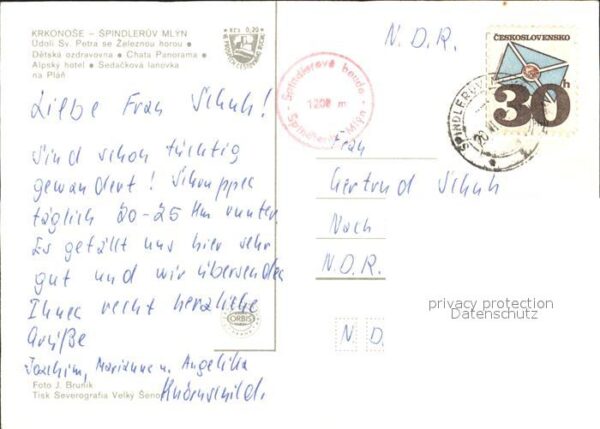 KRKONOŠE – ŠPINDLERŮV MLÝN
Údolí Sv. Petra se Železnou horou •
Dětská ozdravovna • Chata Panorama •
Alpský hotel • Sedačková lanovka
na Pláň
Kčs 0,20
Liebe Frau Schuh!
Sind schon tüchtig
gewandert!
täglich 20-25 km runter
Es gefällt uns hier sehr
gut und wir übersenden
Ihnen recht herzliche
Grüße
Joachim, Marianne u. Angelika
ORBIS
Foto J. Brunik
Tisk Severografia Velký Šeno
N.D.R.
Špindlerova bouda
1208 m
Špindlerův Mlýn
ČESKOSLOVENSKO
30h
ŠPINDLERŮV
Frau
Gertrud Schuh
N.D.R.
N D
privacy protection
Datenschutz